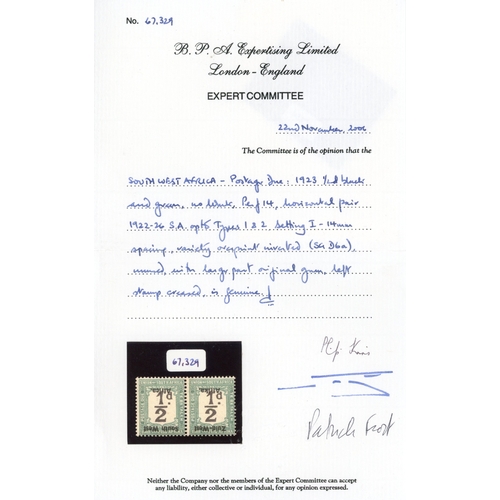 No. 67,329
B. P. A. Expertising Limited
London - England
EXPERT COMMITTEE
22nd November, 2006
The Committee is of the opinion that the
SOUTH WEST AFRICA - Postage Due: 1923 ½d black
and green, no wmk, Perf 14, horizontal pair
1922-26 S.A. opts Types 1 & 2 Setting I - 14mm
spacing, variety overprint inverted (SG D6a),
unused, with large part original gum, left
stamp creased, is genuine.
67,329
½D
½D
South West Africa.
Zuid-West Africa.
Patrick Frost
Neither the Company nor the members of the Expert Committee can accept
any liability, either collective or individual, for any opinion expressed.